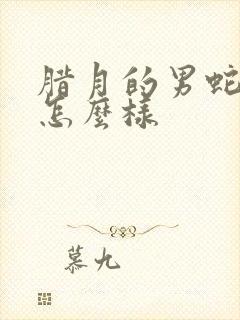 腊月的男蛇
怎麼樣
慕九